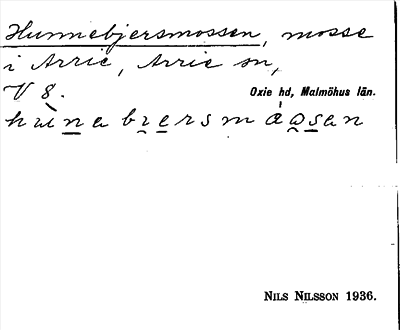 Hunnebjersmossen, mosse
i Arrie, Arrie sn,
V 8. Oxie hd, Malmöhus län.
NILS NILSSON 1936.